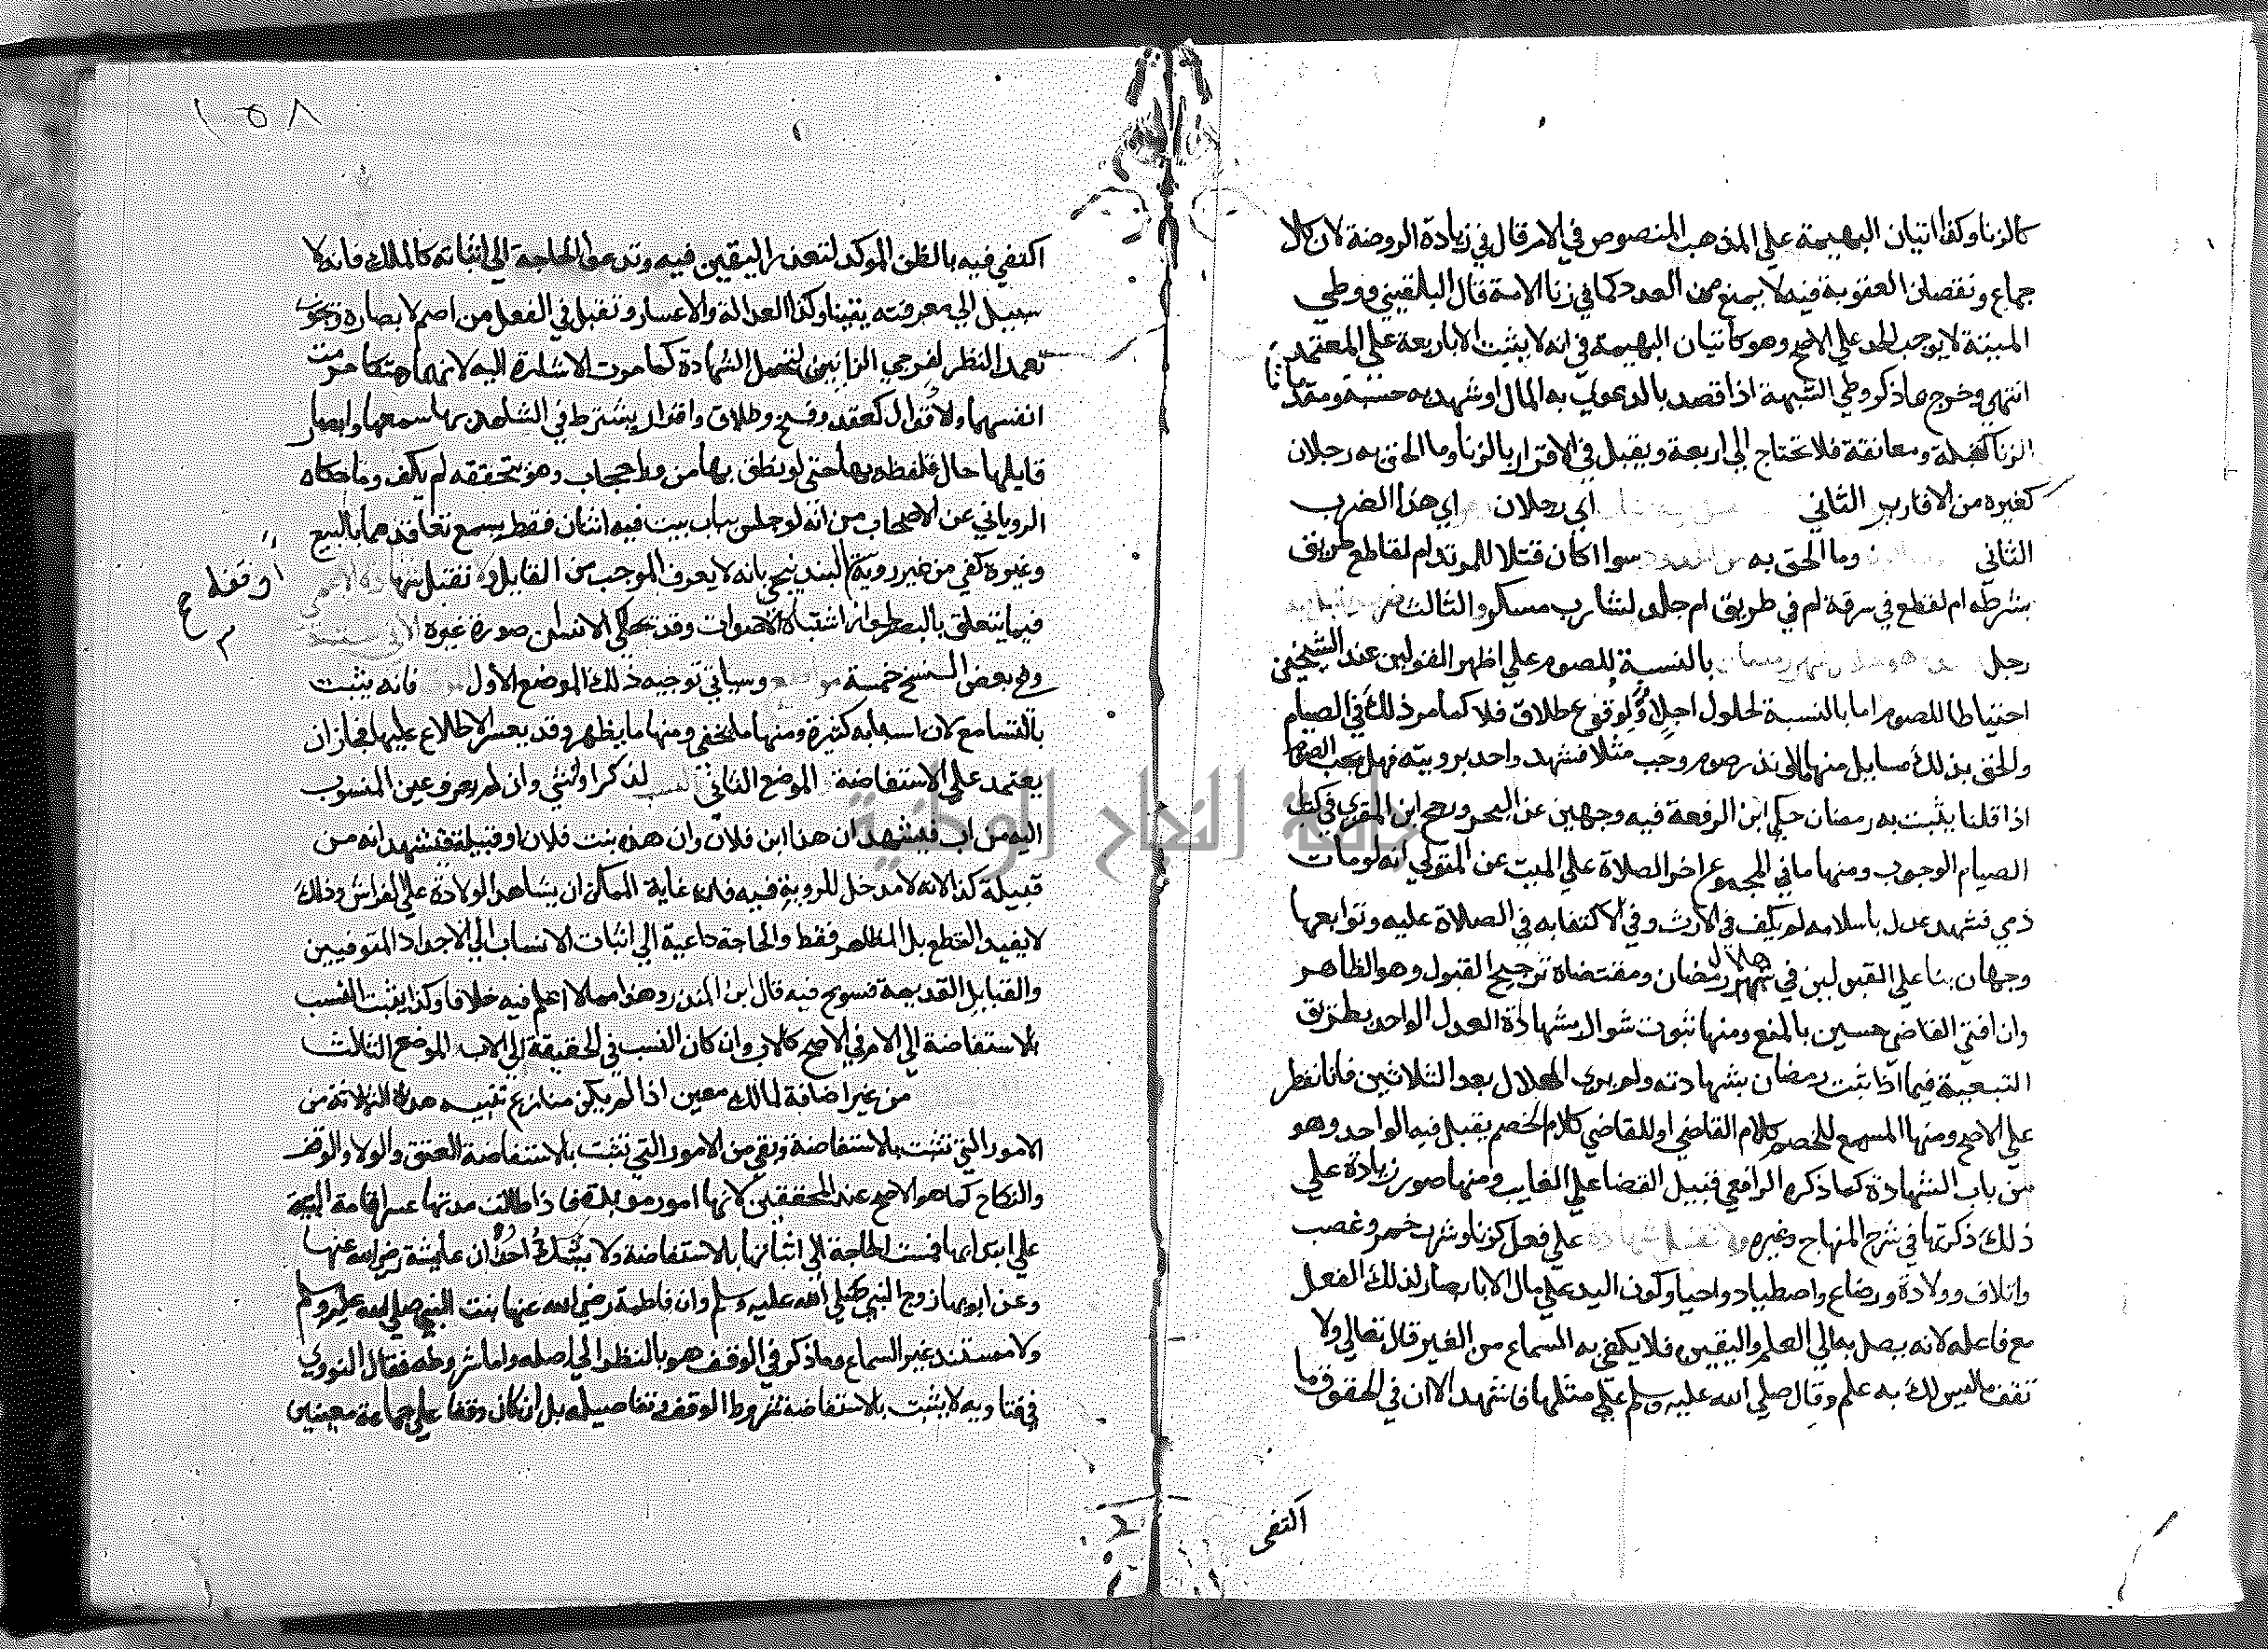 كالزنا وكذا اتيان البهيمة علي المذهب المنصوص في الام قال في زيادة الروضة لان كلا
جماع ونقصان العقوبة فيه لا يمنع من العدد كما في زنا الامة قال البلقيني ووطي
الميتة لا يوجب الحد علي الاصح وهو كاتيان البهيمة في انه لا يثبت الا باربعة علي المعتمد
انتهي وخرج بما ذكر وطي الشبهة اذا قصد بالدعوي به المال او شهد به حسبة ومقدمات
الزنا كقبلة ومعانقة فلا تحتاج الي اربعة ويقبل في الاقرار بالزنا وما الحق به رجلان
كغيره من الاقارير الثاني اي رجلان اي هذا الضرب
الثاني وما الحق به من الحدود سوا اكان قتلا للمرتد ام لقاطع طريق
بشرطه ام لقطع في سرقة ام في طريق ام جلد لشارب مسكر والثالث
رجل وهو هلال شهر رمضان بالنسبة للصوم علي اظهر القولين عند الشيخين
احتياطا للصوم اما بالنسبة لحلول اجل او لوقوع طلاق فلا كما مر ذلك في الصيام
والحق بذلك مسايل منها ما لو نذر صوم رجب مثلا فشهد واحد بروييته فهل يجب الصوم
اذا قلنا يثبت به رمضان حكي ابن الرفعة فيه وجهين عن البحر ورجح ابن المقري في كتاب
الصيام الوجوب ومنها ما في المجموع اخر الصلاة علي الميت عن المتولي انه لو مات
ذمي فشهد عدل باسلامه لم يكف في الارث وفي الاكتفا به في الصلاة عليه وتوابعها
هلال
وجهان بنا علي القبولين في شهر رمضان ومقتضاه ترجيح القبول وهو الظاهر
وان افتي القاضي حسين بالمنع ومنها ثبوت شوال بشهادة العدل الواحد بطريق
التبعية فيما اذا ثبت رمضان بشهادته ولم يري الهلال بعد الثلاثين فانا نفطر
علي الاصح ومنها المسمع للخصم كلام القاضي او للقاضي كلام الخصم يقبل فيه الواحد وهو
من باب الشهادة كما ذكره الرافعي قبيل القضا علي الغايب ومنها صور زيادة علي
ذلك ذكرتها في شرح المنهاج وغيره ولا تقبل شهادة علي فعل كزنا وشرب خمر وغصب
واتلاف وولادة ورضاع واصطياد واحيا وكون اليد علي مال الا بابصار لذلك الفعل
مع فاعله لانه يصل به الي العلم واليقين فلا يكفي به السماع من الغير قال تعالي ولا
تقف ما ليس لك به علم وقال صلي الله عليه وسلم علي مثلها فاشهد الا ان في الحقوق ما
اكتفى
١٥٨
اكتفي فيه بالظن الموكد لتعذر اليقين فيه وتدعوا الحاجة الي اثباته كالملك فانه لا
سبيل الي معرفته يقينا وكذا العدالة والاعسار وتقبل في الفعل من اصم لابصاره ويجوز
تعمد النظر لفرجي الزانيين لتحمل الشهادة كما مرت الاشارة اليه لانهما هتكا حرمة
انفسهما والاقوال كعقد وفسخ وطلاق واقرار يشترط في الشاهد بها سمعها وابصار
قايلها حال تلفظه بها حتي لو نطق بها من وراء حجاب وهو يتحققه لم يكف وما حكاه
الروياني عن الاصحاب من انه لو جلس بباب بيت فيه اثنان فقط يسمع تعاقدهما بالبيع
وغيره كفي من غير روية البندنيجي بانه لا يعرف الموجب من القابل ولا تقبل شهادة الاعمي
اوقفه
فيما يتعلق بالبصر لجواز اشتباه الاصوات وقد يحاكي الانسان صورة غيره الا في
وفي بعض النسخ خمسة مواضع وسياتي توجيه ذلك الموضع الاول فانه يثبت
بالتسامع لان اسبابه كثيرة ومنها ما يخفي ومنها ما يظهر وقد يعسر الاطلاع عليها فجاز ان
يعتمد علي الاستفاضة الموضع الثاني النسب لذكر او انثي وان لم يعرف عين المنسوب
اليه من اب فيشهد ان هذا ابن فلان وان هذه بنت فلان او قبيلة فيشهد انه من
قبيلة كذا لانه لا مدخل للروية فيه فان غاية الممكن ان يشاهد الولادة علي الفراش وذلك
لا يفيد القطع بل الظاهر فقط والحاجة داعية الي اثبات الانساب الي الاجداد المتوفيين
والقبايل القديمة فسومح فيه قال ابن المنذر وهذا مما لا اعلم فيه خلافا وكذا يثبت النسب
بالاستفاضة الي الام في الاصح كالاب وان كان النسب في الحقيقة الي الاب الموضع الثالث
من غير اضافة لمالك معين اذا لم يكن منازع تنبيه هذه الثلاثة من
الامور التي تثبت بالاستفاضة وبقي من الامور التي تثبت بالاستفاضة العتق والولا والوقف
والنكاح كما هو الاصح عند المحققين لانها امور موبدة فاذا طالت مدتها عسر اقامة البينة
علي ابتدايها فمست الحاجة الي اثباتها بالاستفاضة ولا يشك احد ان عايشة رضي الله عنها
وعن ابويها زوج النبي صلي الله عليه وسلم وان فاطمة رضي الله عنها بنت النبي صلي الله عليه وسلم
ولا مستند غير السماع وما ذكر في الوقف هو بالنظر الي اصله واما شروطه فقال النووي
في فتاويه لا يثبت بالاستفاضة شروط الوقف وتفاصيله بل ان كان وقفا علي جماعة معينين
جامعة النجاح الوطنية